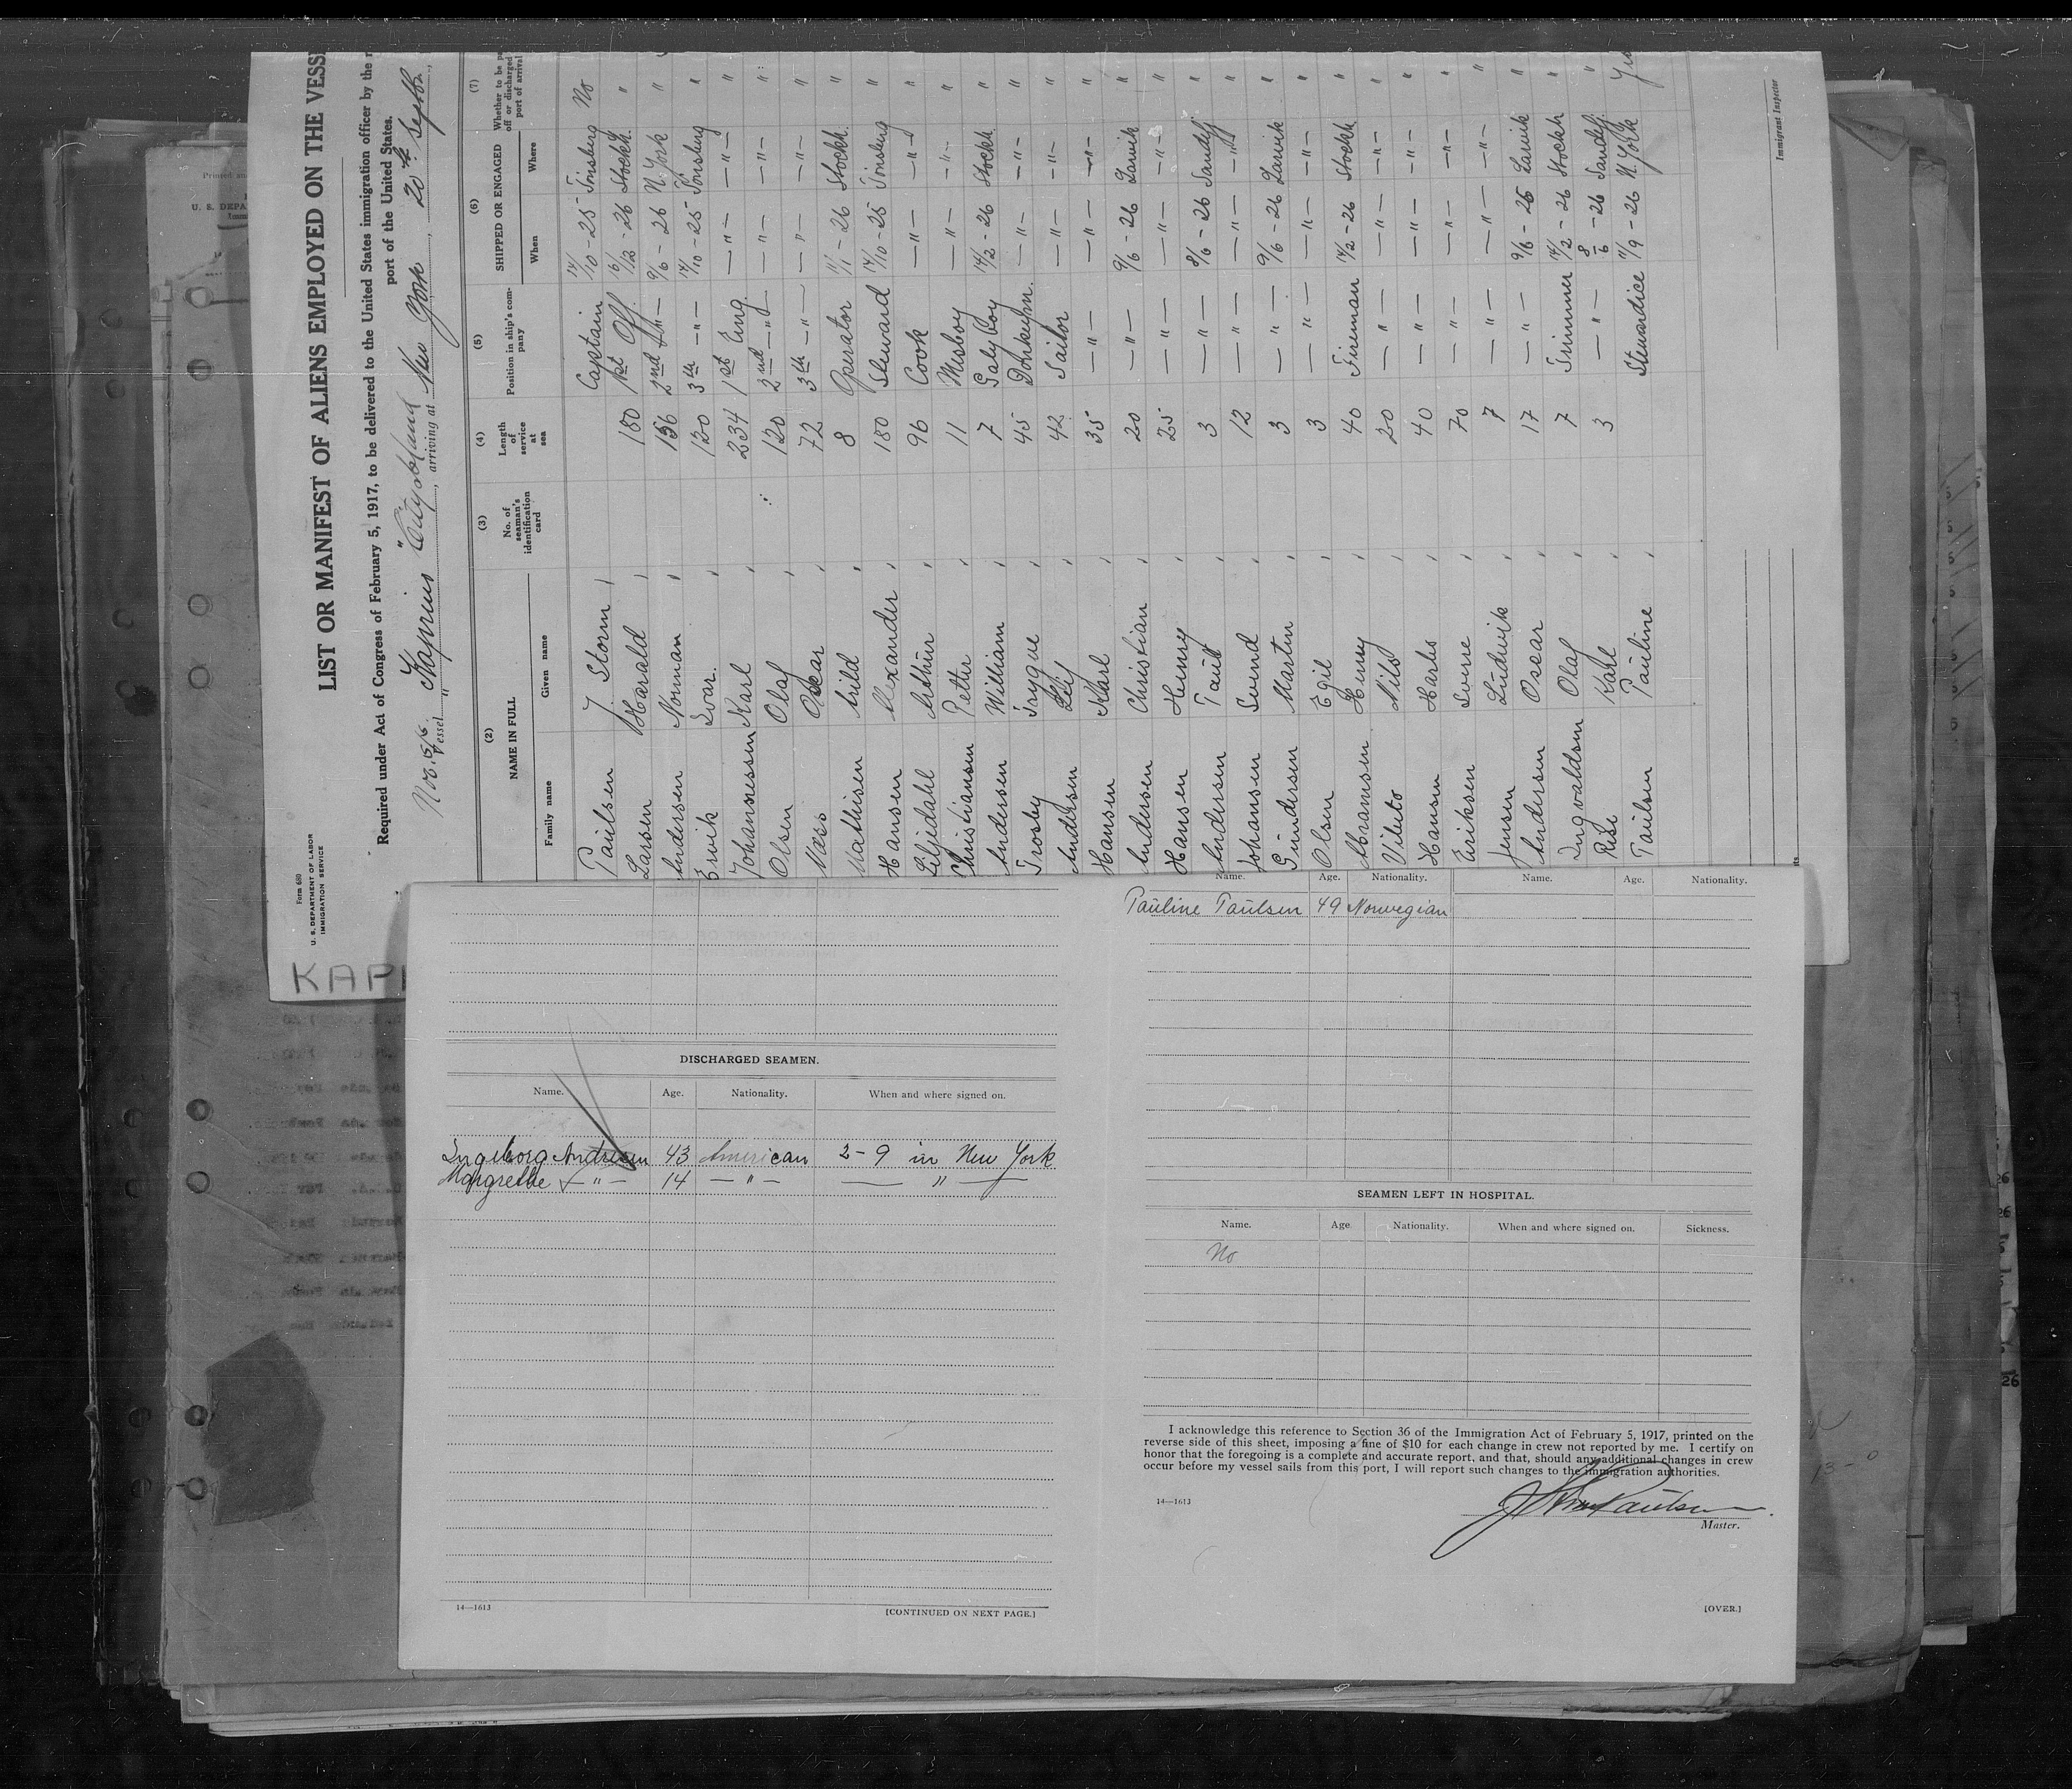 Form 680
U. S. DEPARTMENT OF LABOR
IMMIGRATION SERVICE
LIST OR MANIFEST OF ALIENS EMPLOYED ON THE VESSE
Required under Act of Congress of February 5, 1917, to be delivered to the United States immigration officer by the r
port of the United States.
Vessel " Kaprino , arriving at New York , 20th Septbr.
(2) (3) (4) (5) (6) (7)
NAME IN FULL No. of seaman's identification card Length of service at sea Position in ship's company SHIPPED OR ENGAGED Whether to be pa off or discharged port of arrival
Family name Given name When Where
Paulsen J. Storm Captain 14/10-25 Tönsberg No
Larsen Harald 180 1st Off. 16/12-26 Stockh. "
Andersen Norman 156 2nd — " — 9/6-26 N. York "
Ervik Ivar. 120 3th — " — 14/10-25 Tönsberg "
Johannessen Karl 234 1st Eng. — " — — " — "
Olsen Olaf 120 2nd — " — — " — — " — "
Næss Oskar 72 3th — " — — " — — " — "
Mathisen Arild 8 Operator 11/1-26 Stockh. "
Hansen Alexander 180 Steward 14/10-25 Tönsberg "
Liljedahl Arthur 96 Cook — " — — " — "
Christiansen Petter 11 Mesboy — " — — " — "
Andersen William 7 Galyboy 14/2-26 Stockh. "
Trosby Trygve 45 Donkeymn. — " — — " — "
Andersen Leif 42 Sailor — " — — " — "
Hansen Karl 35 — " — — " — — " — "
Andersen Christian 20 — " — 9/6-26 Larvik "
Hansen Henry 25 — " — — " — — " — "
Anderssen Taut 3 — " — 8/6-26 Sandefj. "
Johansen Svend 12 — " — — " — — " — "
Gundersen Martin 3 — " — 9/6-26 Larvik "
Olsen Egil 3 — " — — " — — " — "
Abramsen Henry 40 Fireman 14/2-26 Stockh. "
Nils 20 — " — — " — — " — "
Hansen Harles 40 — " — — " — — " — "
Eriksen Sverre 70 — " — — " — — " — "
Jensen Ludvik 7 — " — — " — — " — "
Andersen Oscar 17 — " — 9/6-26 Larvik "
Ingvaldsen Olaf 7 Trimmer 14/2-26 Stockh "
Risi Karl 3 — " — 8/6-26 Sandefj. "
Paulsen Pauline Stewardice 11/9-26 N. York
Immigrant Inspector
KAP
Name. Age. Nationality. Name. Age. Nationality.
Pauline Paulsen 49 Norwegian
DISCHARGED SEAMEN.
Name. Age. Nationality. When and where signed on.
Ingeborg Andresen 43 American 2-9 in New York
Margrethe — " — 14 — " — — " —
14—1613
[CONTINUED ON NEXT PAGE.]
SEAMEN LEFT IN HOSPITAL.
Name. Age Nationality. When and where signed on. Sickness.
No
I acknowledge this reference to Section 36 of the Immigration Act of February 5, 1917, printed on the
reverse side of this sheet, imposing a fine of $10 for each change in crew not reported by me. I certify on
honor that the foregoing is a complete and accurate report, and that, should any additional changes in crew
occur before my vessel sails from this port, I will report such changes to the immigration authorities.
14—1613
J Storm Paulsen
Master.
[OVER.]